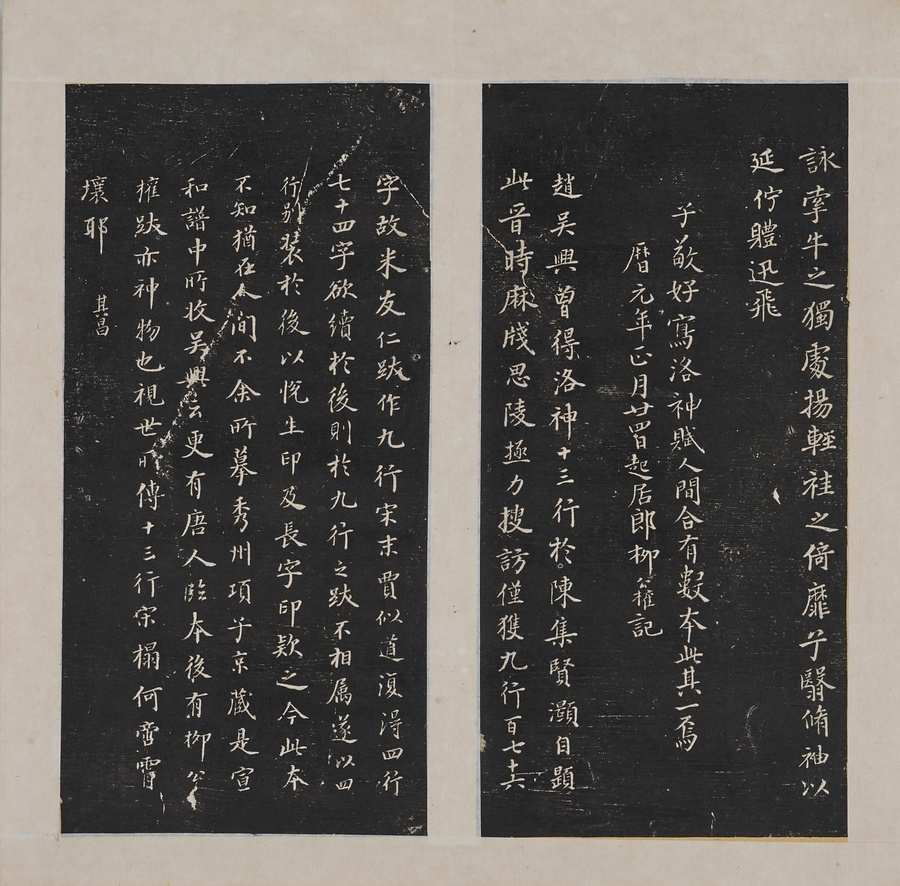 詠牽牛之獨處揚輕袿之倚靡兮翳脩袖以
延佇體迅飛
子敬好寫洛神賦人間合有數本此其一焉
曆元年正月廿四日起居郎柳公權記
趙吳興曾得洛神十三行於陳集賢灝自題
此晉時麻牋思陵極力搜訪僅獲九行百七十六
字故米友仁跋作九行宋末賈似道復得四行
七十四字欲續於後則於九行之跋不相属遂以四
行別裝於後以悅生印及長字印款之今此本
不知猶在人間不余所摹秀州項子京藏是宣
和譜中所收吳興云更有唐人臨本後有柳公
權跋亦神物也視世所傳十三行宋榻何啻霄
壤耶
其昌